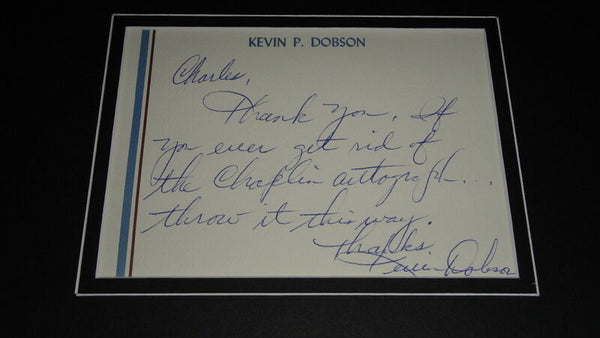 KEVIN P. DOBSON
Charles,
Thank You. If
you ever get rid of
the Chaplin autograph...
throw it this way.
Thanks.
Kevin Dobson